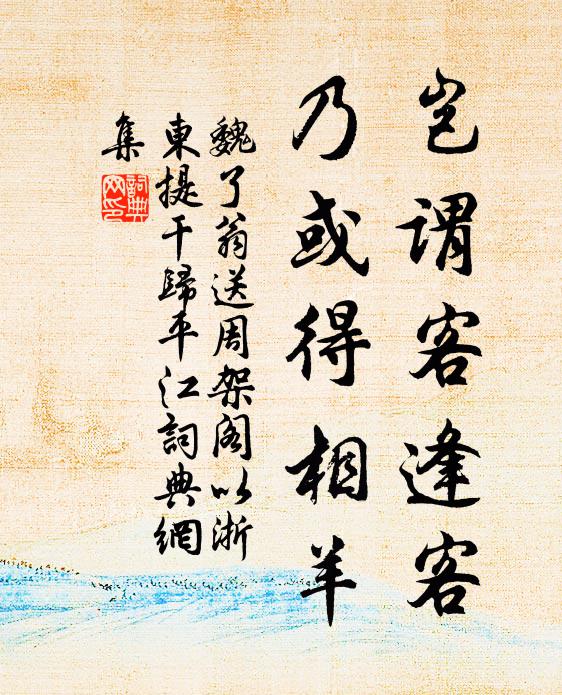 豈謂客逢客
乃或得相羊
魏了翁送周架阁以浙
東提干歸平江詞典網
集
詞典
网印